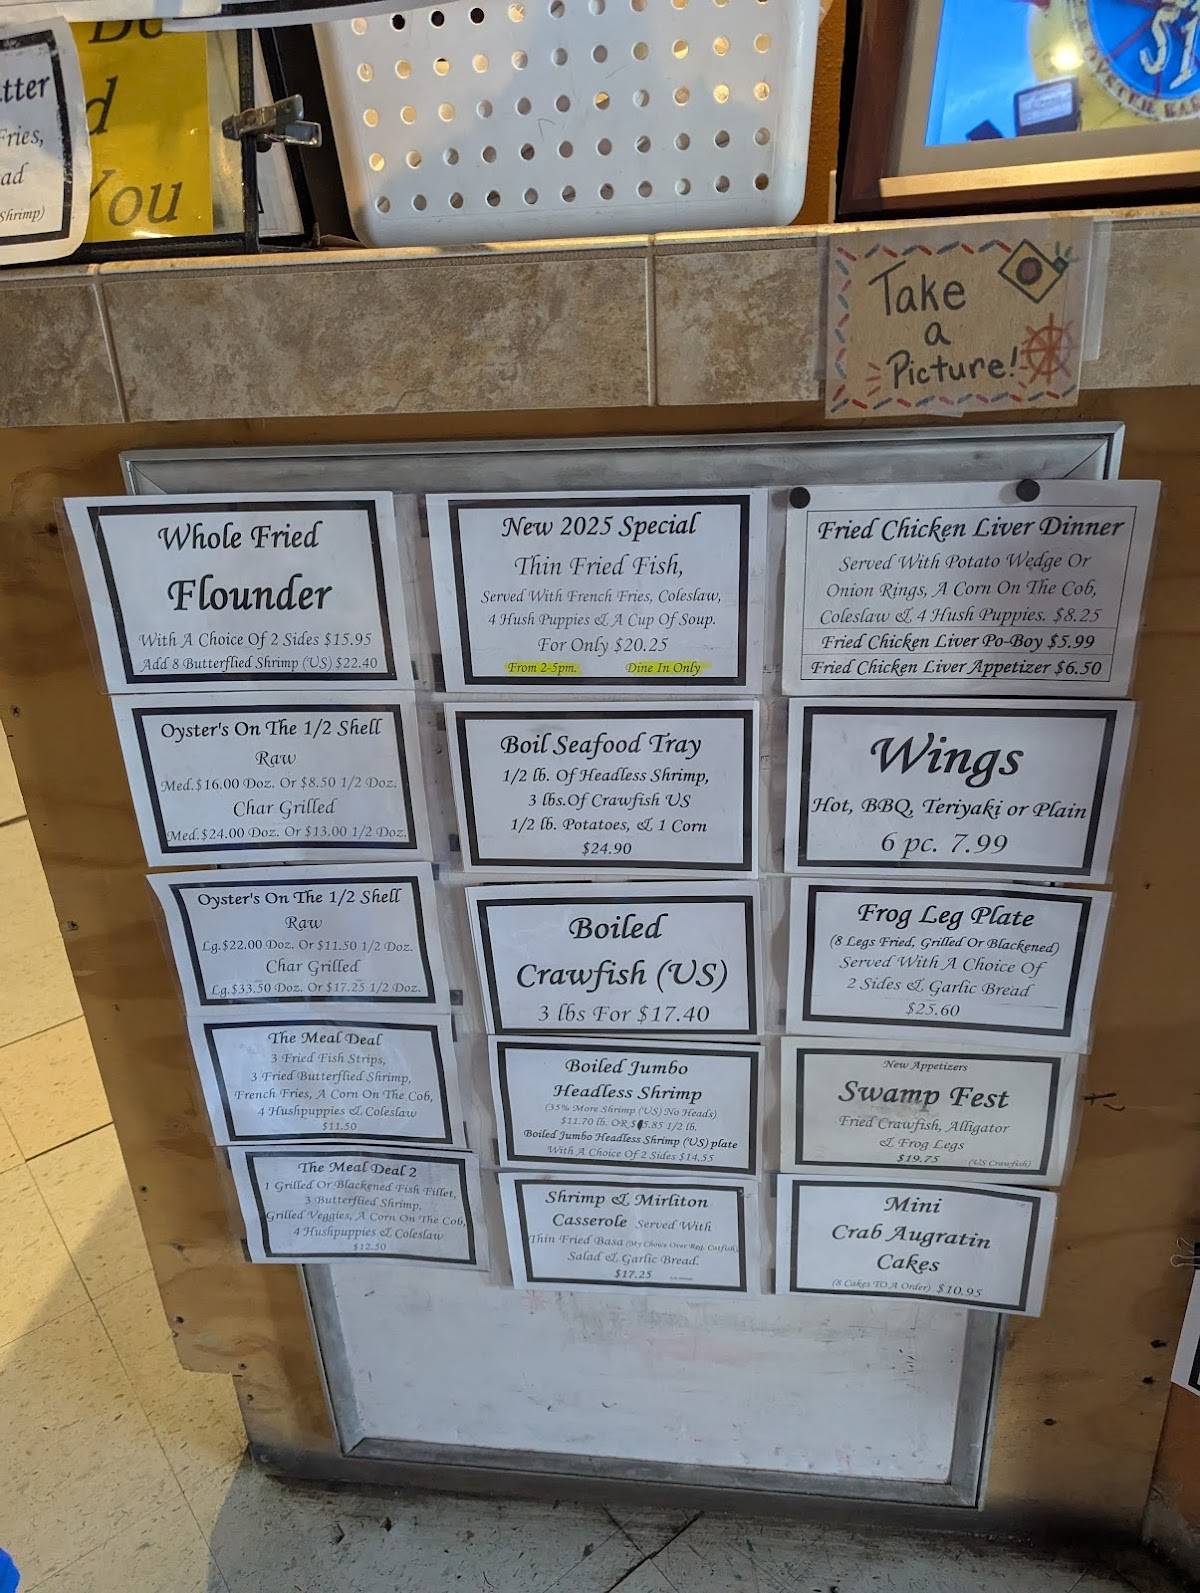 tter
Fries,
ad
Shrimp)
d
You
Take
a
Picture!
Whole Fried
Flounder
With A Choice Of 2 Sides $15.95
Add 8 Butterflied Shrimp (US) $22.40
Oyster's On The 1/2 Shell
Raw
Med.$16.00 Doz. Or $8.50 1/2 Doz.
Char Grilled
Med.$24.00 Doz. Or $13.00 1/2 Doz.
Oyster's On The 1/2 Shell
Raw
Lg.$22.00 Doz. Or $11.50 1/2 Doz.
Char Grilled
Lg.$33.50 Doz. Or $17.25 1/2 Doz.
The Meal Deal
3 Fried Fish Strips,
3 Fried Butterflied Shrimp,
French Fries, A Corn On The Cob,
4 Hushpuppies & Coleslaw
$11.50
The Meal Deal 2
1 Grilled Or Blackened Fish Fillet,
3 Butterflied Shrimp,
Grilled Veggies, A Corn On The Cob,
4 Hushpuppies & Coleslaw
$12.50
New 2025 Special
Thin Fried Fish,
Served With French Fries, Coleslaw,
4 Hush Puppies & A Cup Of Soup.
For Only $20.25
From 2-5pm. Dine In Only
Boil Seafood Tray
1/2 lb. Of Headless Shrimp,
3 lbs.Of Crawfish US
1/2 lb. Potatoes, & 1 Corn
$24.90
Boiled
Crawfish (US)
3 lbs For $17.40
Boiled Jumbo
Headless Shrimp
(35% More Shrimp (US) No Heads)
$11.70 lb. OR $5.85 1/2 lb.
Boiled Jumbo Headless Shrimp (US) plate
With A Choice Of 2 Sides $14.55
Shrimp & Mirliton
Casserole Served With
Thin Fried Basa (My Choice Over Reg. Catfish)
Salad & Garlic Bread.
$17.25
Fried Chicken Liver Dinner
Served With Potato Wedge Or
Onion Rings, A Corn On The Cob,
Coleslaw & 4 Hush Puppies. $8.25
Fried Chicken Liver Po-Boy $5.99
Fried Chicken Liver Appetizer $6.50
Wings
Hot, BBQ, Teriyaki or Plain
6 pc. 7.99
Frog Leg Plate
(8 Legs Fried, Grilled Or Blackened)
Served With A Choice Of
2 Sides & Garlic Bread
$25.60
New Appetizers
Swamp Fest
Fried Crawfish, Alligator
& Frog Legs
$19.75 (US Crawfish)
Mini
Crab Augratin
Cakes
(8 Cakes TO A Order) $10.95